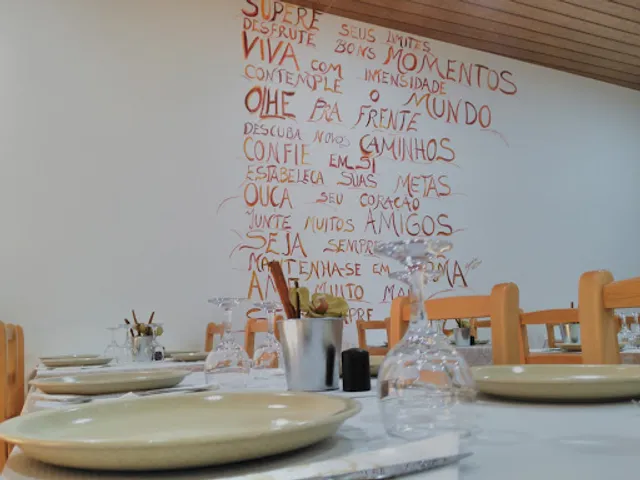 SUPERE SEUS LIMITES
DESFRUTE BONS MOMENTOS
VIVA COM INTENSIDADE
CONTEMPLE O MUNDO
OLHE PRA FRENTE
DESCUBA NOVOS CAMINHOS
CONFIE EM SI
ESTABELEÇA SUAS METAS
OUÇA SEU CORAÇÃO
JUNTE MUITOS AMIGOS
SEJA SEMPRE
MANTENHA-SE EM
MUITO